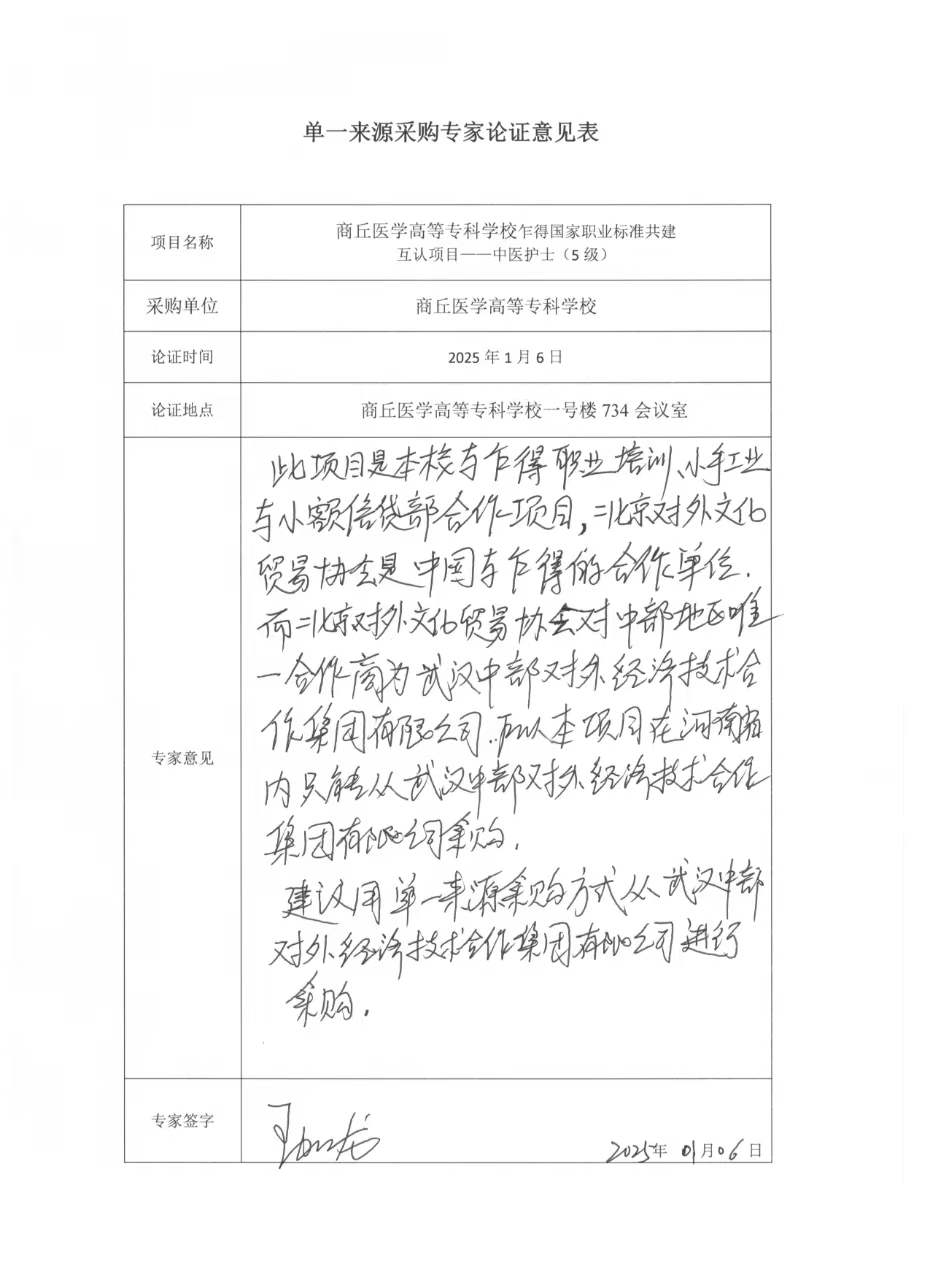 单一来源采购专家论证意见表
项目名称
商丘医学高等专科学校乍得国家职业标准共建
互认项目——中医护士（5 级）
采购单位
商丘医学高等专科学校
论证时间
2025 年 1 月 6 日
论证地点
商丘医学高等专科学校一号楼 734 会议室
专家意见
此项目是本校与乍得职业培训、小手工业
与小额信贷部合作项目，北京对外文化
贸易协会是中国与乍得的合作单位.
而北京对外文化贸易协会对中部地区唯
一合作商为武汉中部对外经济技术合
作集团有限公司.所以本项目在河南省
内只能从武汉中部对外经济技术合作
集团有限公司采购.
建议用单一来源采购方式从武汉中部
对外经济技术合作集团有限公司进行
采购.
专家签字
2025年 01月06日